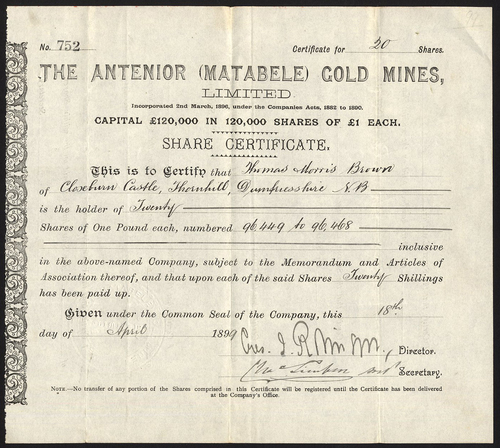 No. 752 Certificate for 20 Shares.
THE ANTENIOR (MATABELE) GOLD MINES,
LIMITED
Incorporated 2nd March, 1896, under the Companies Acts, 1862 to 1890.
CAPITAL £120,000 IN 120,000 SHARES OF £1 EACH.
SHARE CERTIFICATE.
This is to Certify that Thomas Morris Brown
of Closeburn Castle, Thornhill, Dumfriesshire N.B
is the holder of Twenty
Shares of One Pound each, numbered 96,449 to 96,468
inclusive
in the above-named Company, subject to the Memorandum and Articles of
Association thereof, and that upon each of the said Shares Twenty Shillings
has been paid up.
Given under the Common Seal of the Company, this 18th
day of April 1899
Director.
Secretary.
NOTE.—No transfer of any portion of the Shares comprised in this Certificate will be registered until the Certificate has been delivered
at the Company's Office.